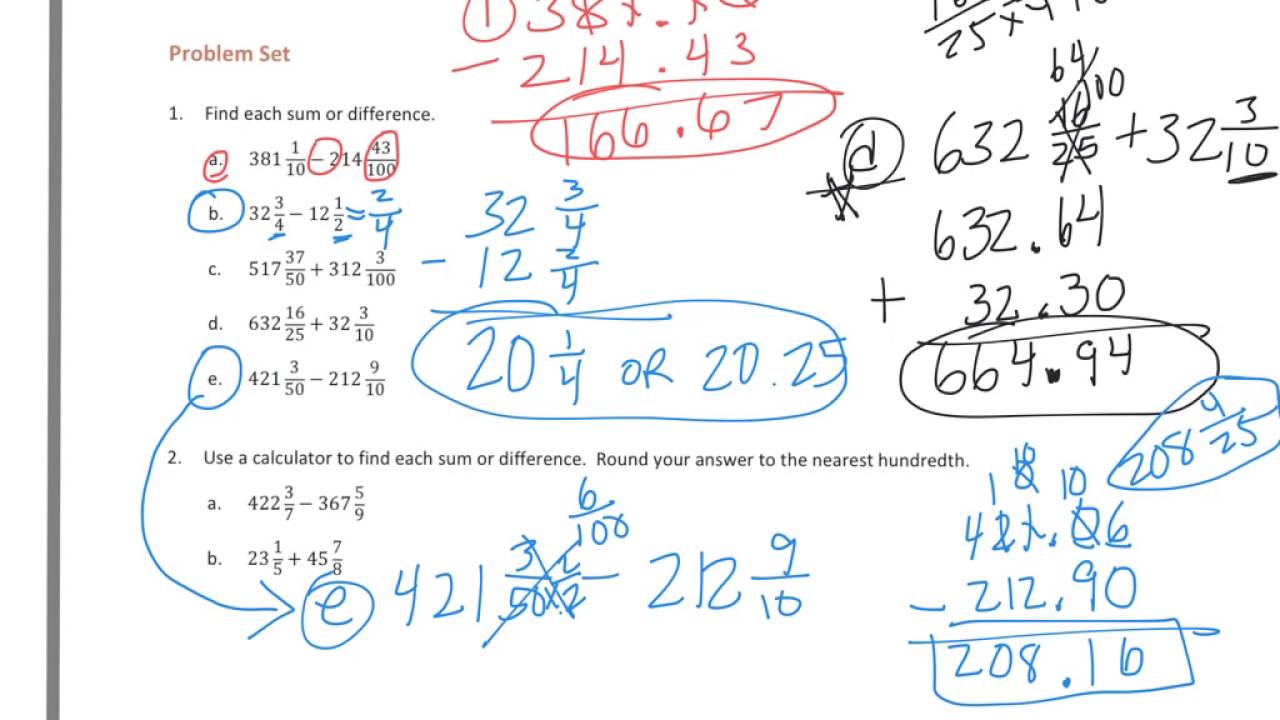 Problem Set
1. Find each sum or difference.
a. 381 1/10 − 214 43/100
b. 32 3/4 − 12 1/2 = 2/4
c. 517 37/50 + 312 3/100
d. 632 16/25 + 32 3/10
e. 421 3/50 − 212 9/10
2. Use a calculator to find each sum or difference. Round your answer to the nearest hundredth.
a. 422 3/7 − 367 5/9
b. 23 1/5 + 45 7/8
− 214.43
166.67
32 3/4
− 12 2/4
20 1/4 OR 20.25
d 632 16/25 + 32 3/10
64/100
632.64
+ 32.30
664.94
e 421 3/50 × 2/2 − 212 9/10
6/100
421.06
− 212.90
208.16
208 4/25